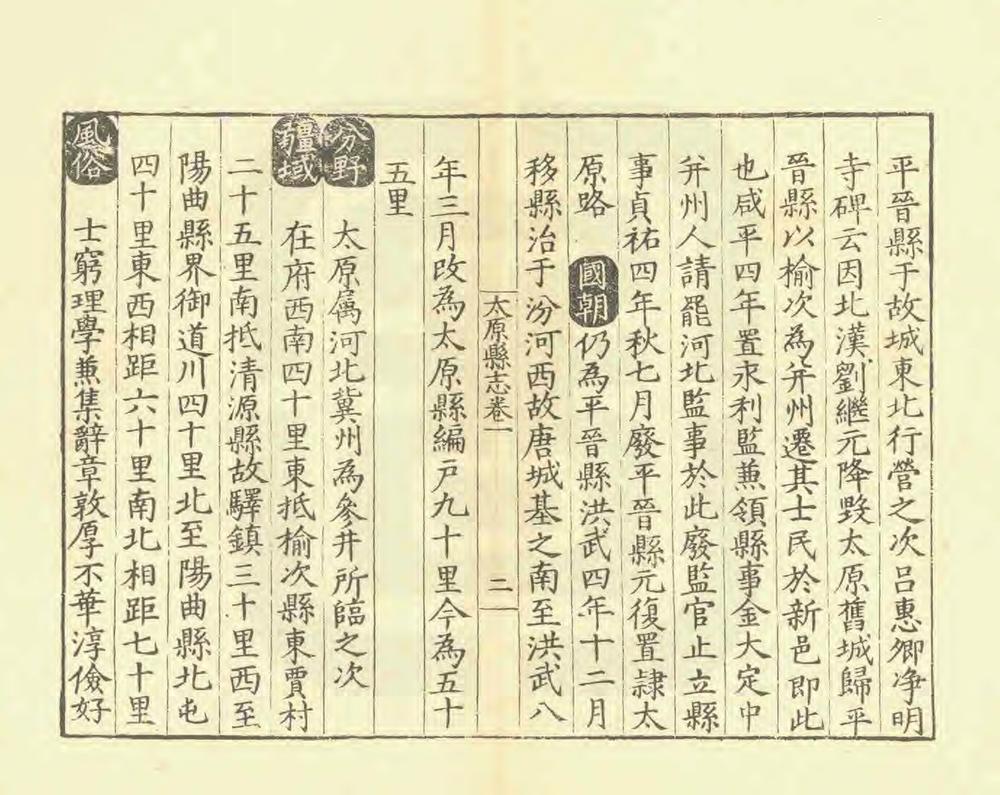 平晉縣于故城東北行營之次呂惠卿净明
寺碑云因北漢劉繼元降毀太原舊城歸平
晉縣以榆次為并州遷其士民於新邑即此
也咸平四年置永利監兼領縣事金大定中
并州人請罷河北監事於此廢監官止立縣
事貞祐四年秋七月廢平晉縣元復置隸太
原路　國朝仍為平晉縣洪武四年十二月
移縣治于汾河西故唐城基之南至洪武八
太原縣志卷一　二
年三月改為太原縣編戶九十里今為五十
五里
分野　太原属河北冀州為參井所臨之次
疆域　在府西南四十里東抵榆次縣東賈村
二十五里南抵清源縣故驛鎮三十里西至
陽曲縣界御道川四十里北至陽曲縣北屯
四十里東西相距六十里南北相距七十里
風俗　士窮理學兼集辭章敦厚不華淳儉好